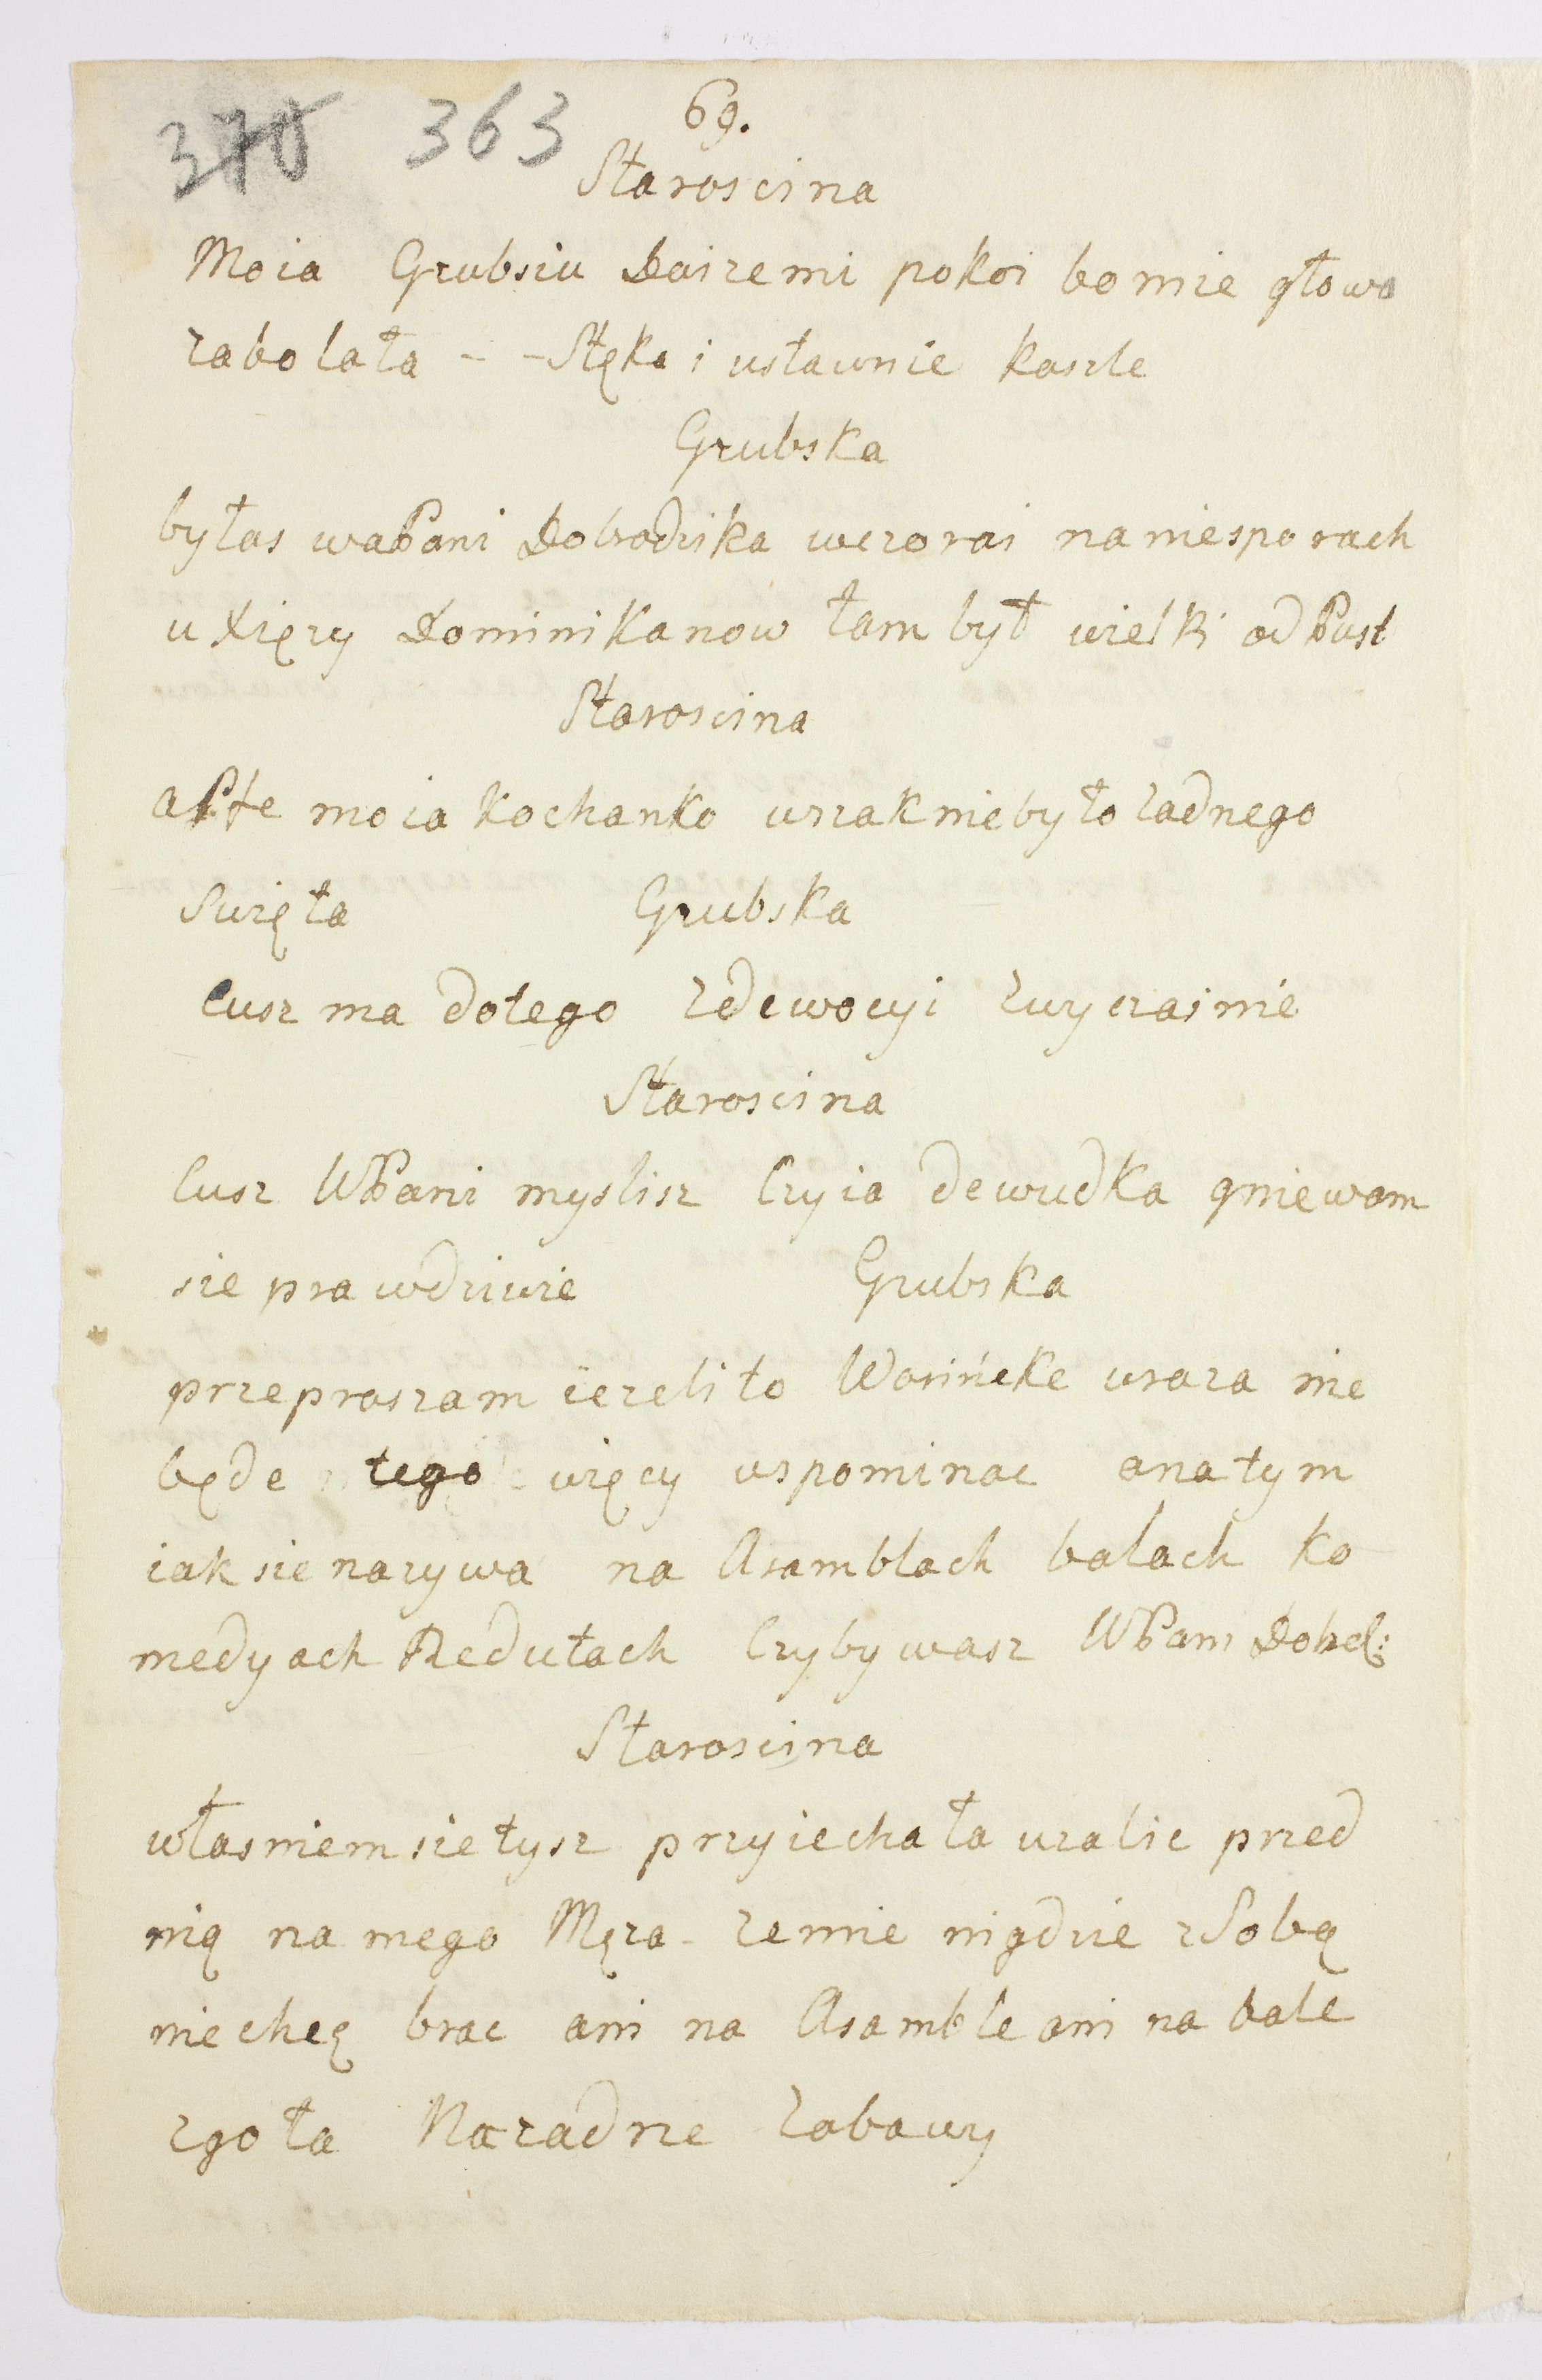 370 363 69.
Staroscina
Moia Grubsiu Daizemi pokoi bo mie głowa
zabolała - - Stęka i ustawnie kaszle
Grubska
byłas waPani Dobrodzika wczorai na niesporach
u Xięzy Dominikanow tam był wielki odPust
Staroscina
moia kochanko wszak niebyło zadnego
Swięta Grubska
Cusz ma dotego zdewocyi zwyczainie
Staroscina
Cusz WPani myslisz Czyia dewudka gniewam
sie prawdziwie Grubska
przepraszam iezeli to uraza nie
będe tego więcy wspominac anatym
iak sie nazywa na Asamblach balach ko
medyach Redutach Czybywasz WPani Dobrd:
Staroscina
własniem sie tysz przyiechała uzalic przed
nią na mego Męza - zemie nigdzie z Sobą
niechcę brac ani na Asamble ani na bale
zgoła Nazadne zabawy